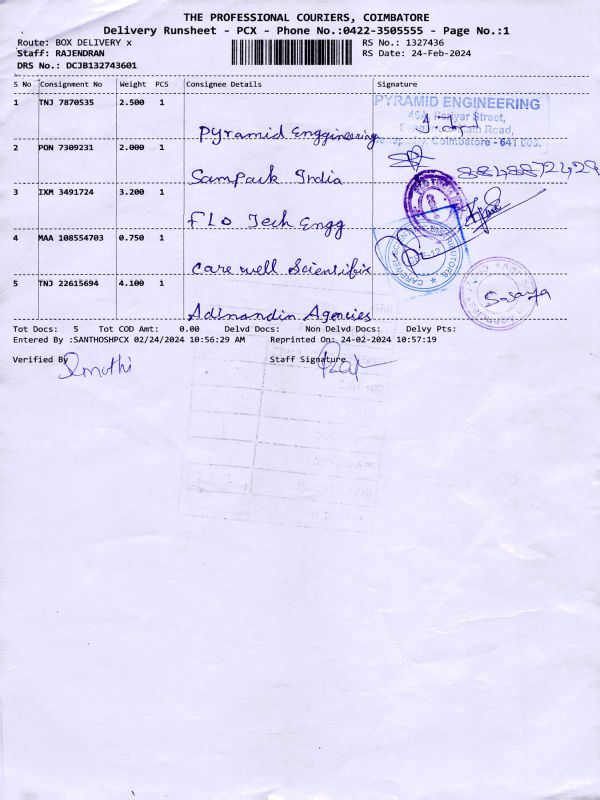 THE PROFESSIONAL COURIERS, COIMBATORE
Delivery Runsheet - PCX - Phone No.:0422-3505555 - Page No.:1
Route: BOX DELIVERY x
RS No.: 1327436
Staff: RAJENDRAN
RS Date: 24-Feb-2024
DRS No.: DCJB132743601
S No Consignment No Weight PCS Consignee Details Signature
1 TNJ 7870535 2.500 1
PYRAMID ENGINEERING
Periyar Street,
Road,
Coimbatore - 641 006.
Pyramid Enggineering
2 PON 7309231 2.000 1
Sampark India
8848872429
3 IXM 3491724 3.200 1
FLO Tech Engg
4 MAA 108554703 0.750 1
Care well Scientifix
5 TNJ 22615694 4.100 1
Adinandin Agencies
Tot Docs: 5 Tot COD Amt: 0.00 Delvd Docs: Non Delvd Docs: Delvy Pts:
Entered By :SANTHOSHPCX 02/24/2024 10:56:29 AM Reprinted On: 24-02-2024 10:57:19
Verified By
Staff Signature